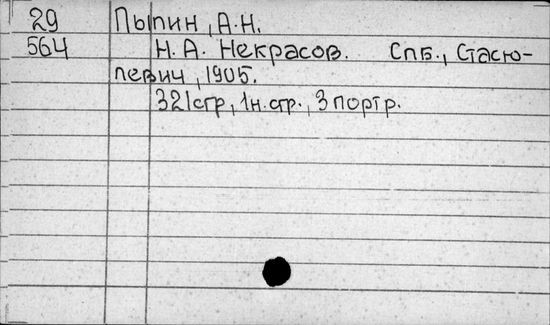 29 Пыпин, А.Н.
564 Н. А. Некрасов. Спб., Стасю-
левич, 1905.
321стр, 1н.стр., 3 портр.